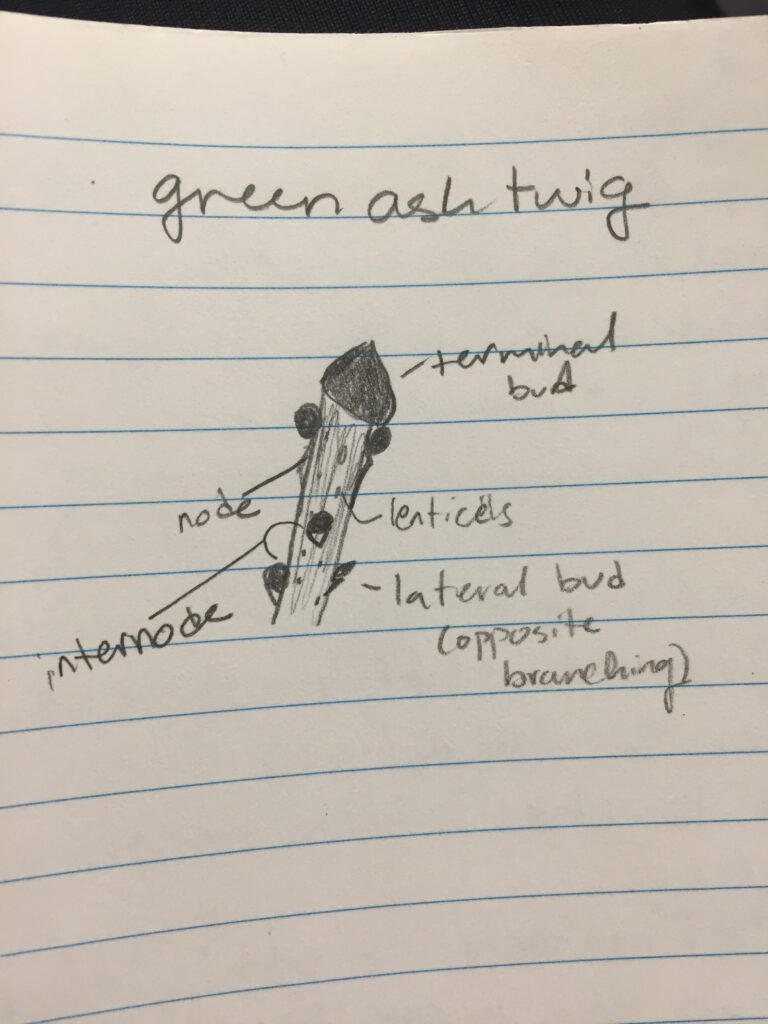 green ash twig
terminal
bud
node
lenticels
internode
lateral bud
(opposite
branching)